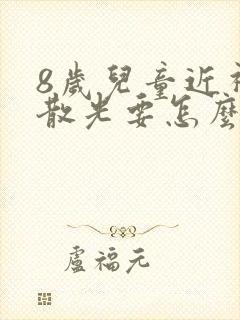 8歲兒童近
散光要怎麼
盧福元